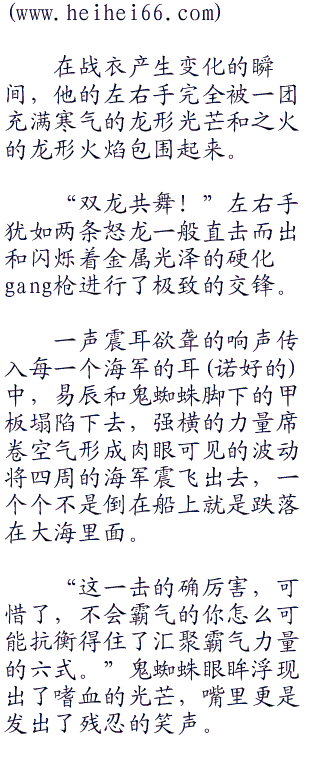 (www.heihei66.com)
在战衣产生变化的瞬
间，他的左右手完全被一团
充满寒气的龙形光芒和之火
的龙形火焰包围起来。
“双龙共舞！”左右手
犹如两条怒龙一般直击而出
和闪烁着金属光泽的硬化
gang枪进行了极致的交锋。
一声震耳欲聋的响声传
入每一个海军的耳(诺好的)
中，易辰和鬼蜘蛛脚下的甲
板塌陷下去，强横的力量席
卷空气形成肉眼可见的波动
将四周的海军震飞出去，一
个个不是倒在船上就是跌落
在大海里面。
“这一击的确厉害，可
惜了，不会霸气的你怎么可
能抗衡得住了汇聚霸气力量
的六式。”鬼蜘蛛眼眸浮现
出了嗜血的光芒，嘴里更是
发出了残忍的笑声。